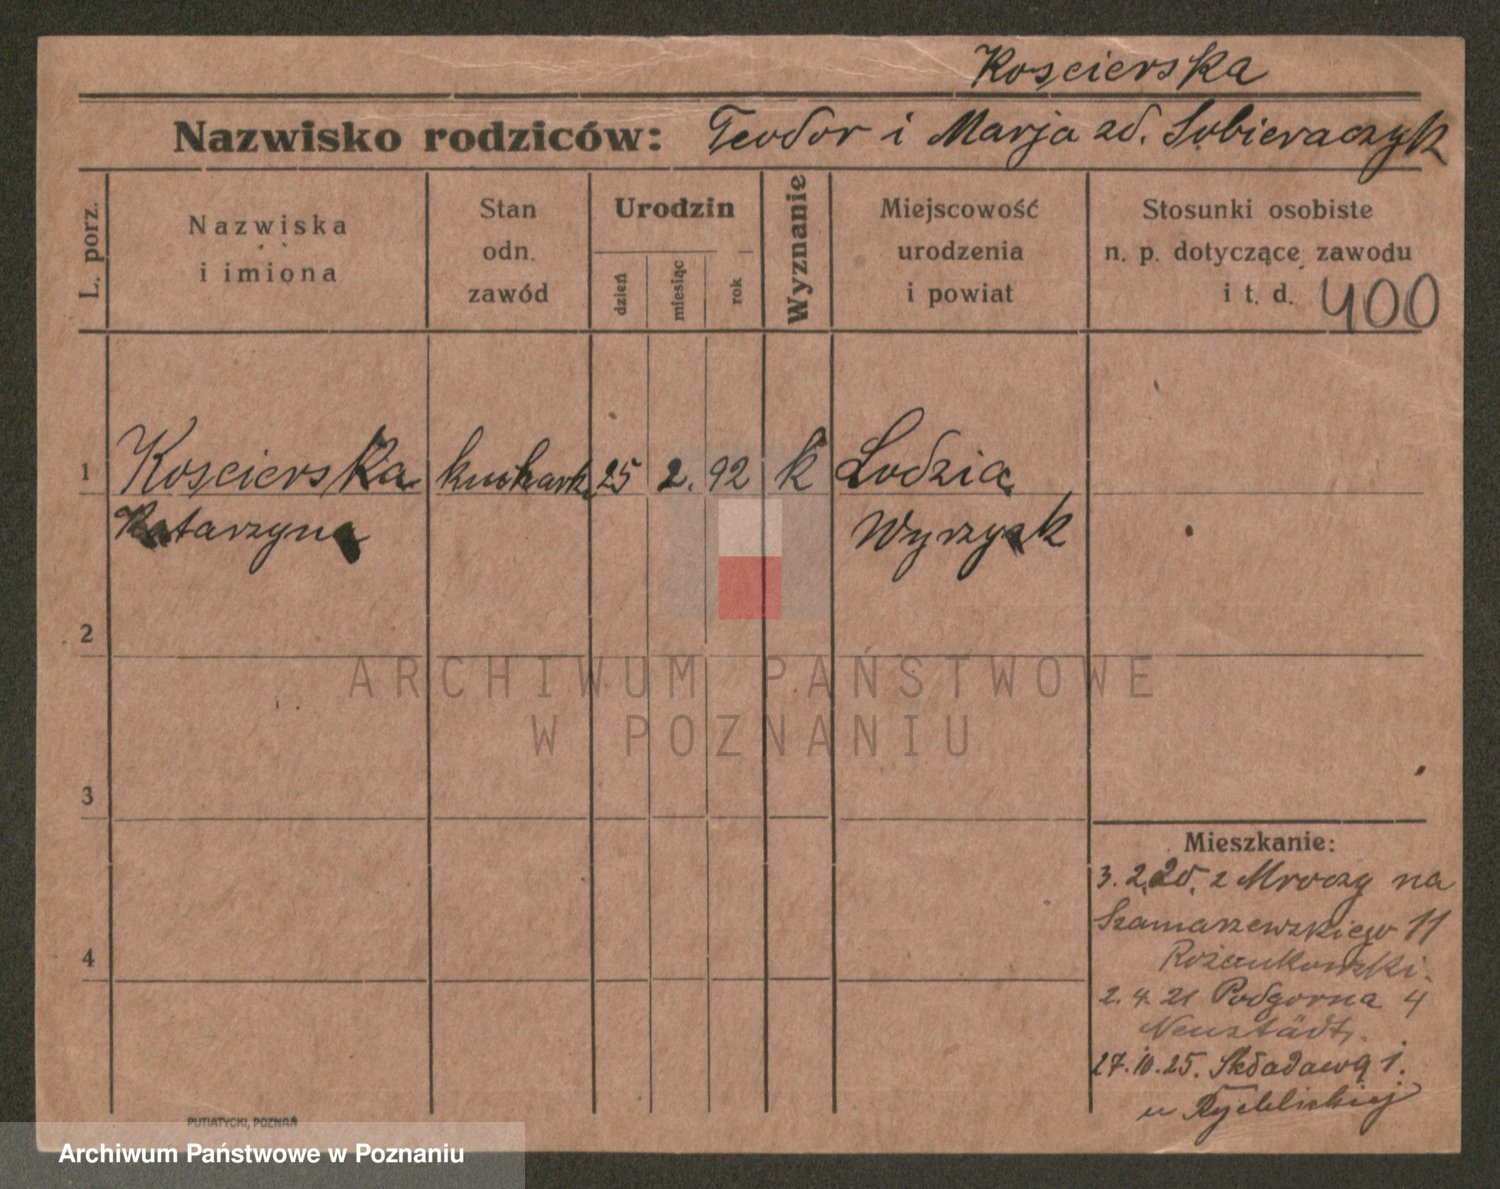 Koscierska
Nazwisko rodziców: Teodor i Marja zd. Sobieraczyk
L. porz.
Nazwiska
i imiona
Stan
odn.
zawód
Urodzin
dzień
miesiąc
rok
Wyznanie
Miejscowość
urodzenia
i powiat
Stosunki osobiste
n. p. dotyczące zawodu
i t. d. 400
1 Koscierska kuchark. 25 2. 92 k Lodzia
Katarzyna Wyrzysk
2
ARCHIWUM PAŃSTWOWE
W POZNANIU
3
Mieszkanie:
3. 2. 20. z Mroczy na
Szamarzewskiego 11
4
Rożankowski.
2. 4. 21 Podgorna 4
Neustädt.
27. 10. 25. Składową 1.
u Rychlickiej
PUTIATYCKI, POZNAŃ
Archiwum Państwowe w Poznaniu